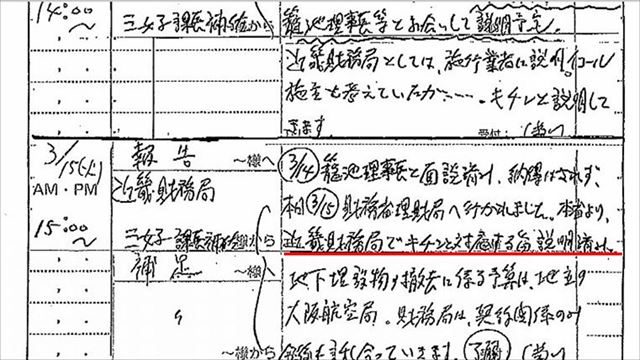 14:00
〜
三好 課長補佐から
籠池理事長等とお会いして説明予定。
近畿財務局としては、施行業者に説明イコール
施主も考えていたが……。キチンと説明して
きます
受付:
3/15(火)
報告
〜様へ
AM・PM
近畿財務局
15:00
〜
三好 課長補佐から
補足
〜様から
3/14 籠池理事長と面談済み、納得はされず、
本日3/15財務省理財局へ行かれました。本省より、
近畿財務局でキチンと対応する旨説明済み。
地下埋設物の撤去に係る予算は、
大阪航空局。財務局は、契約関係のみ